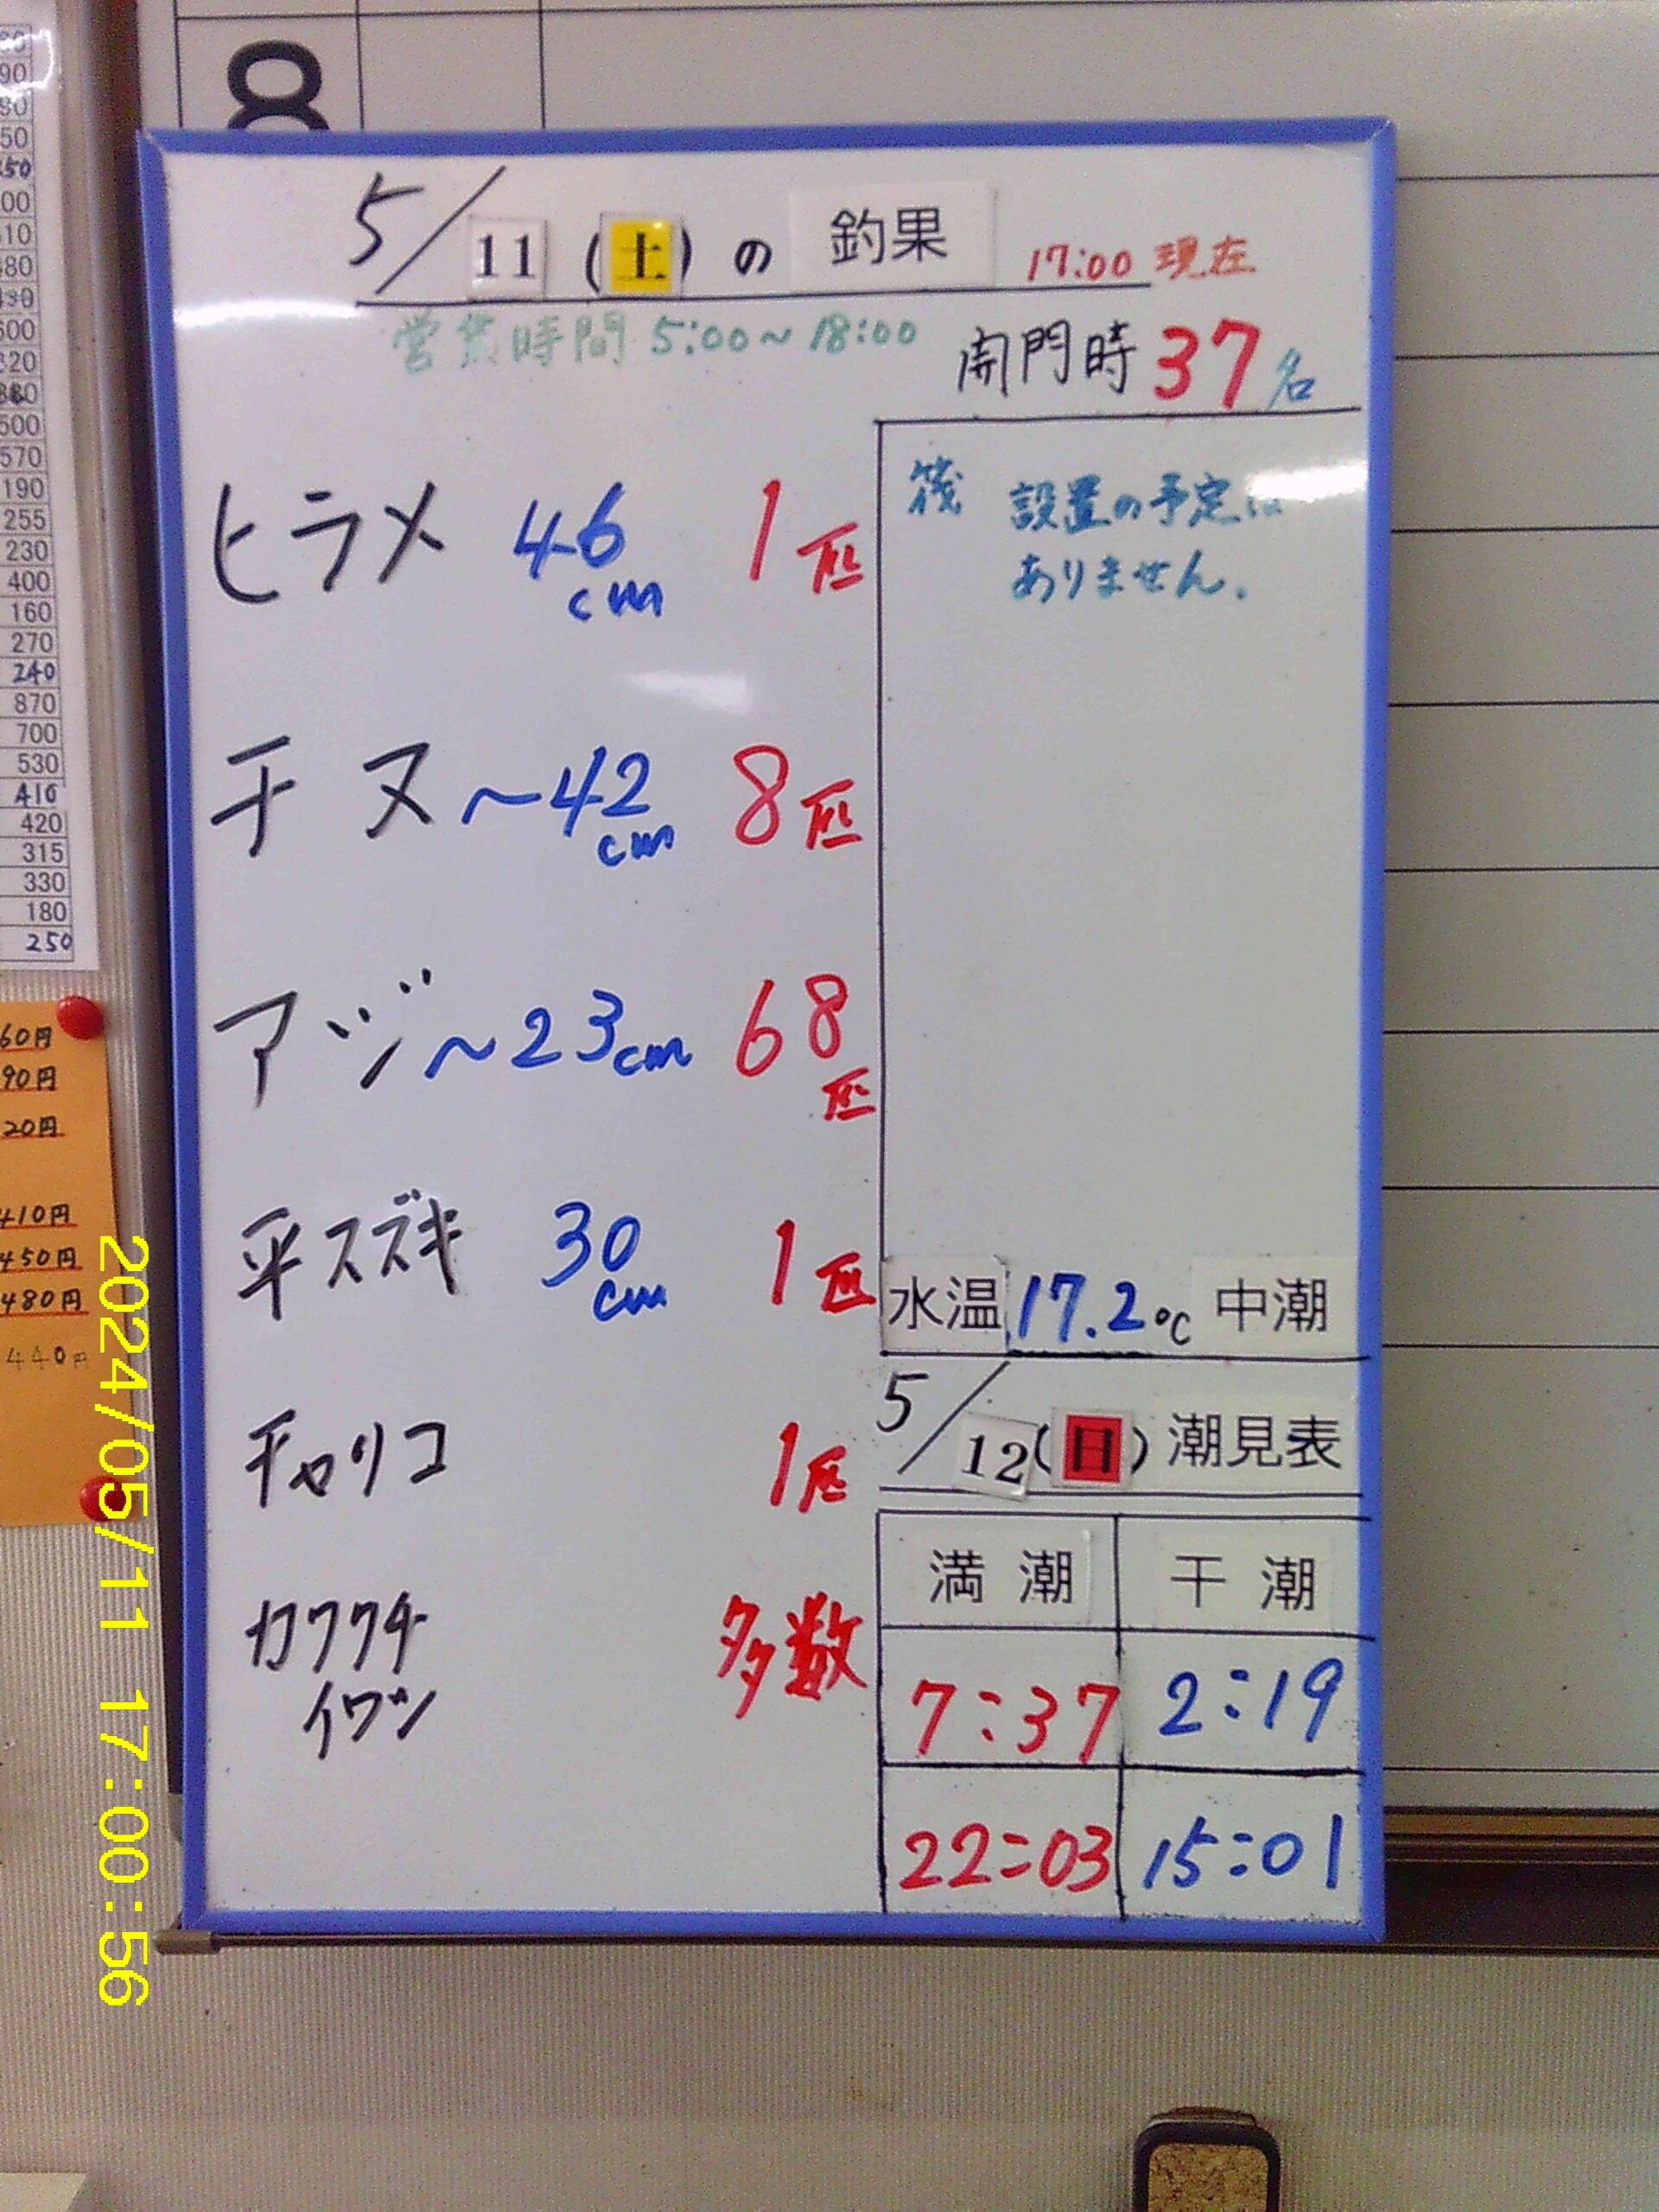 8
5/11(土)の 釣果 17:00 現在
営業時間 5:00~18:00
開門時 37名
ヒラメ 46cm 1匹
チヌ ~42cm 8匹
アジ ~23cm 68匹
平スズキ 30cm 1匹
チャリコ 1匹
カタクチ
イワシ 多数
筏 設置の予定は
ありません.
水温 17.2℃ 中潮
5/12(日) 潮見表
満潮 干潮
7:37 2:19
22:03 15:01
190
255
230
400
160
270
240
870
700
530
410
420
315
330
180
250
60円
90円
20円
410円
450円
480円
440円
2024/05/11 17:00:56